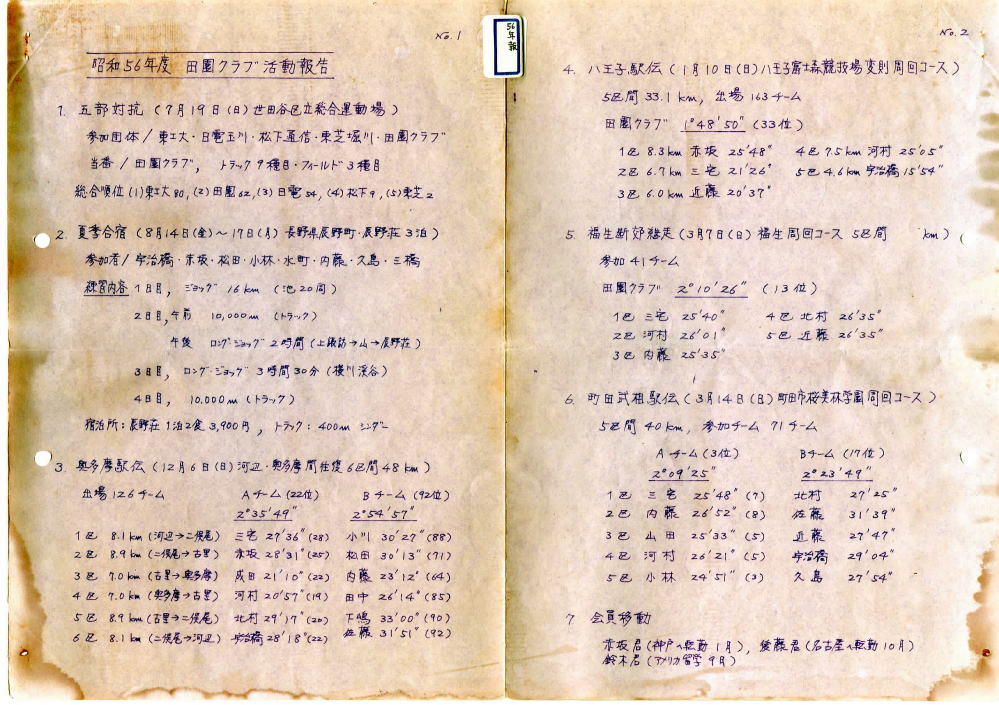 No. 1
昭和56年度 田園クラブ活動報告
1. 五部対抗 (7月19日(日)世田谷区立総合運動場)
参加団体/東工大・日電玉川・松下通信・東芝堀川・田園クラブ
当番/田園クラブ, トラック9種目・フィールド3種目
総合順位(1)東工大80,(2)田園62,(3)日電54,(4)松下9,(5)東芝2
2. 夏季合宿 (8月14日(金)~17日(月) 長野県辰野町・辰野荘3泊)
参加者/宇治橋・赤坂・松田・小林・水町・内藤・久島・三橋
練習内容 1日目, ジョッグ 16km (池20周)
2日目,午前 10,000m (トラック)
午後 ロングジョッグ2時間(上諏訪→山→辰野荘)
3日目, ロング・ジョッグ 3時間30分 (横川渓谷)
4日目, 10,000m (トラック)
宿泊所:辰野荘1泊2食3,900円, トラック:400m シンダー
3. 奥多摩駅伝 (12月6日(日)河辺・奥多摩間往復6区間48km)
出場126チーム Aチーム(22位) Bチーム(92位)
2°35'49" 2°54'57"
1区 8.1km(河辺→二俣尾) 三宅 27'36"(28) 小川 30'27"(88)
2区 8.9km(二俣尾→古里) 赤坂 28'31"(25) 松田 30'13"(71)
3区 7.0km(古里→奥多摩) 成田 21'10"(22) 内藤 23'12"(64)
4区 7.0km(奥多摩→古里) 河村 20'57"(19) 田中 26'14"(85)
5区 8.9km(古里→二俣尾) 北村 29'17"(20) 下嶋 33'00"(90)
6区 8.1km(二俣尾→河辺) 宇治橋 28'18"(22) 佐藤 31'51"(92)
56年報
No. 2
4. 八王子駅伝 (1月10日(日)八王子富士森競技場変則周回コース)
5区間 33.1km, 出場163チーム
田園クラブ 1°48'50" (33位)
1区 8.3km 赤坂 25'48" 4区 7.5km 河村 25'05"
2区 6.7km 三宅 21'26" 5区 4.6km 宇治橋 15'54"
3区 6.0km 近藤 20'37"
5. 福生断郊継走(3月7日(日)福生周回コース 5区間 km)
参加41チーム
田園クラブ 2°10'26" (13位)
1区 三宅 25'40" 4区 北村 26'35"
2区 河村 26'01" 5区 近藤 26'35"
3区 内藤 25'35"
6. 町田武相駅伝(3月14日(日)町田市桜美林学園周回コース)
5区間 40km, 参加チーム 71チーム
Aチーム(3位) Bチーム(17位)
2°09'25" 2°23'49"
1区 三宅 25'48"(7) 北村 27'25"
2区 内藤 26'52"(8) 佐藤 31'39"
3区 山田 25'33"(5) 近藤 27'47"
4区 河村 26'21"(5) 宇治橋 29'04"
5区 小林 24'51"(3) 久島 27'54"
7 会員移動
赤坂君(神戸へ転勤1月), 後藤君(名古屋へ転勤10月)
鈴木君(アメリカ留学9月)